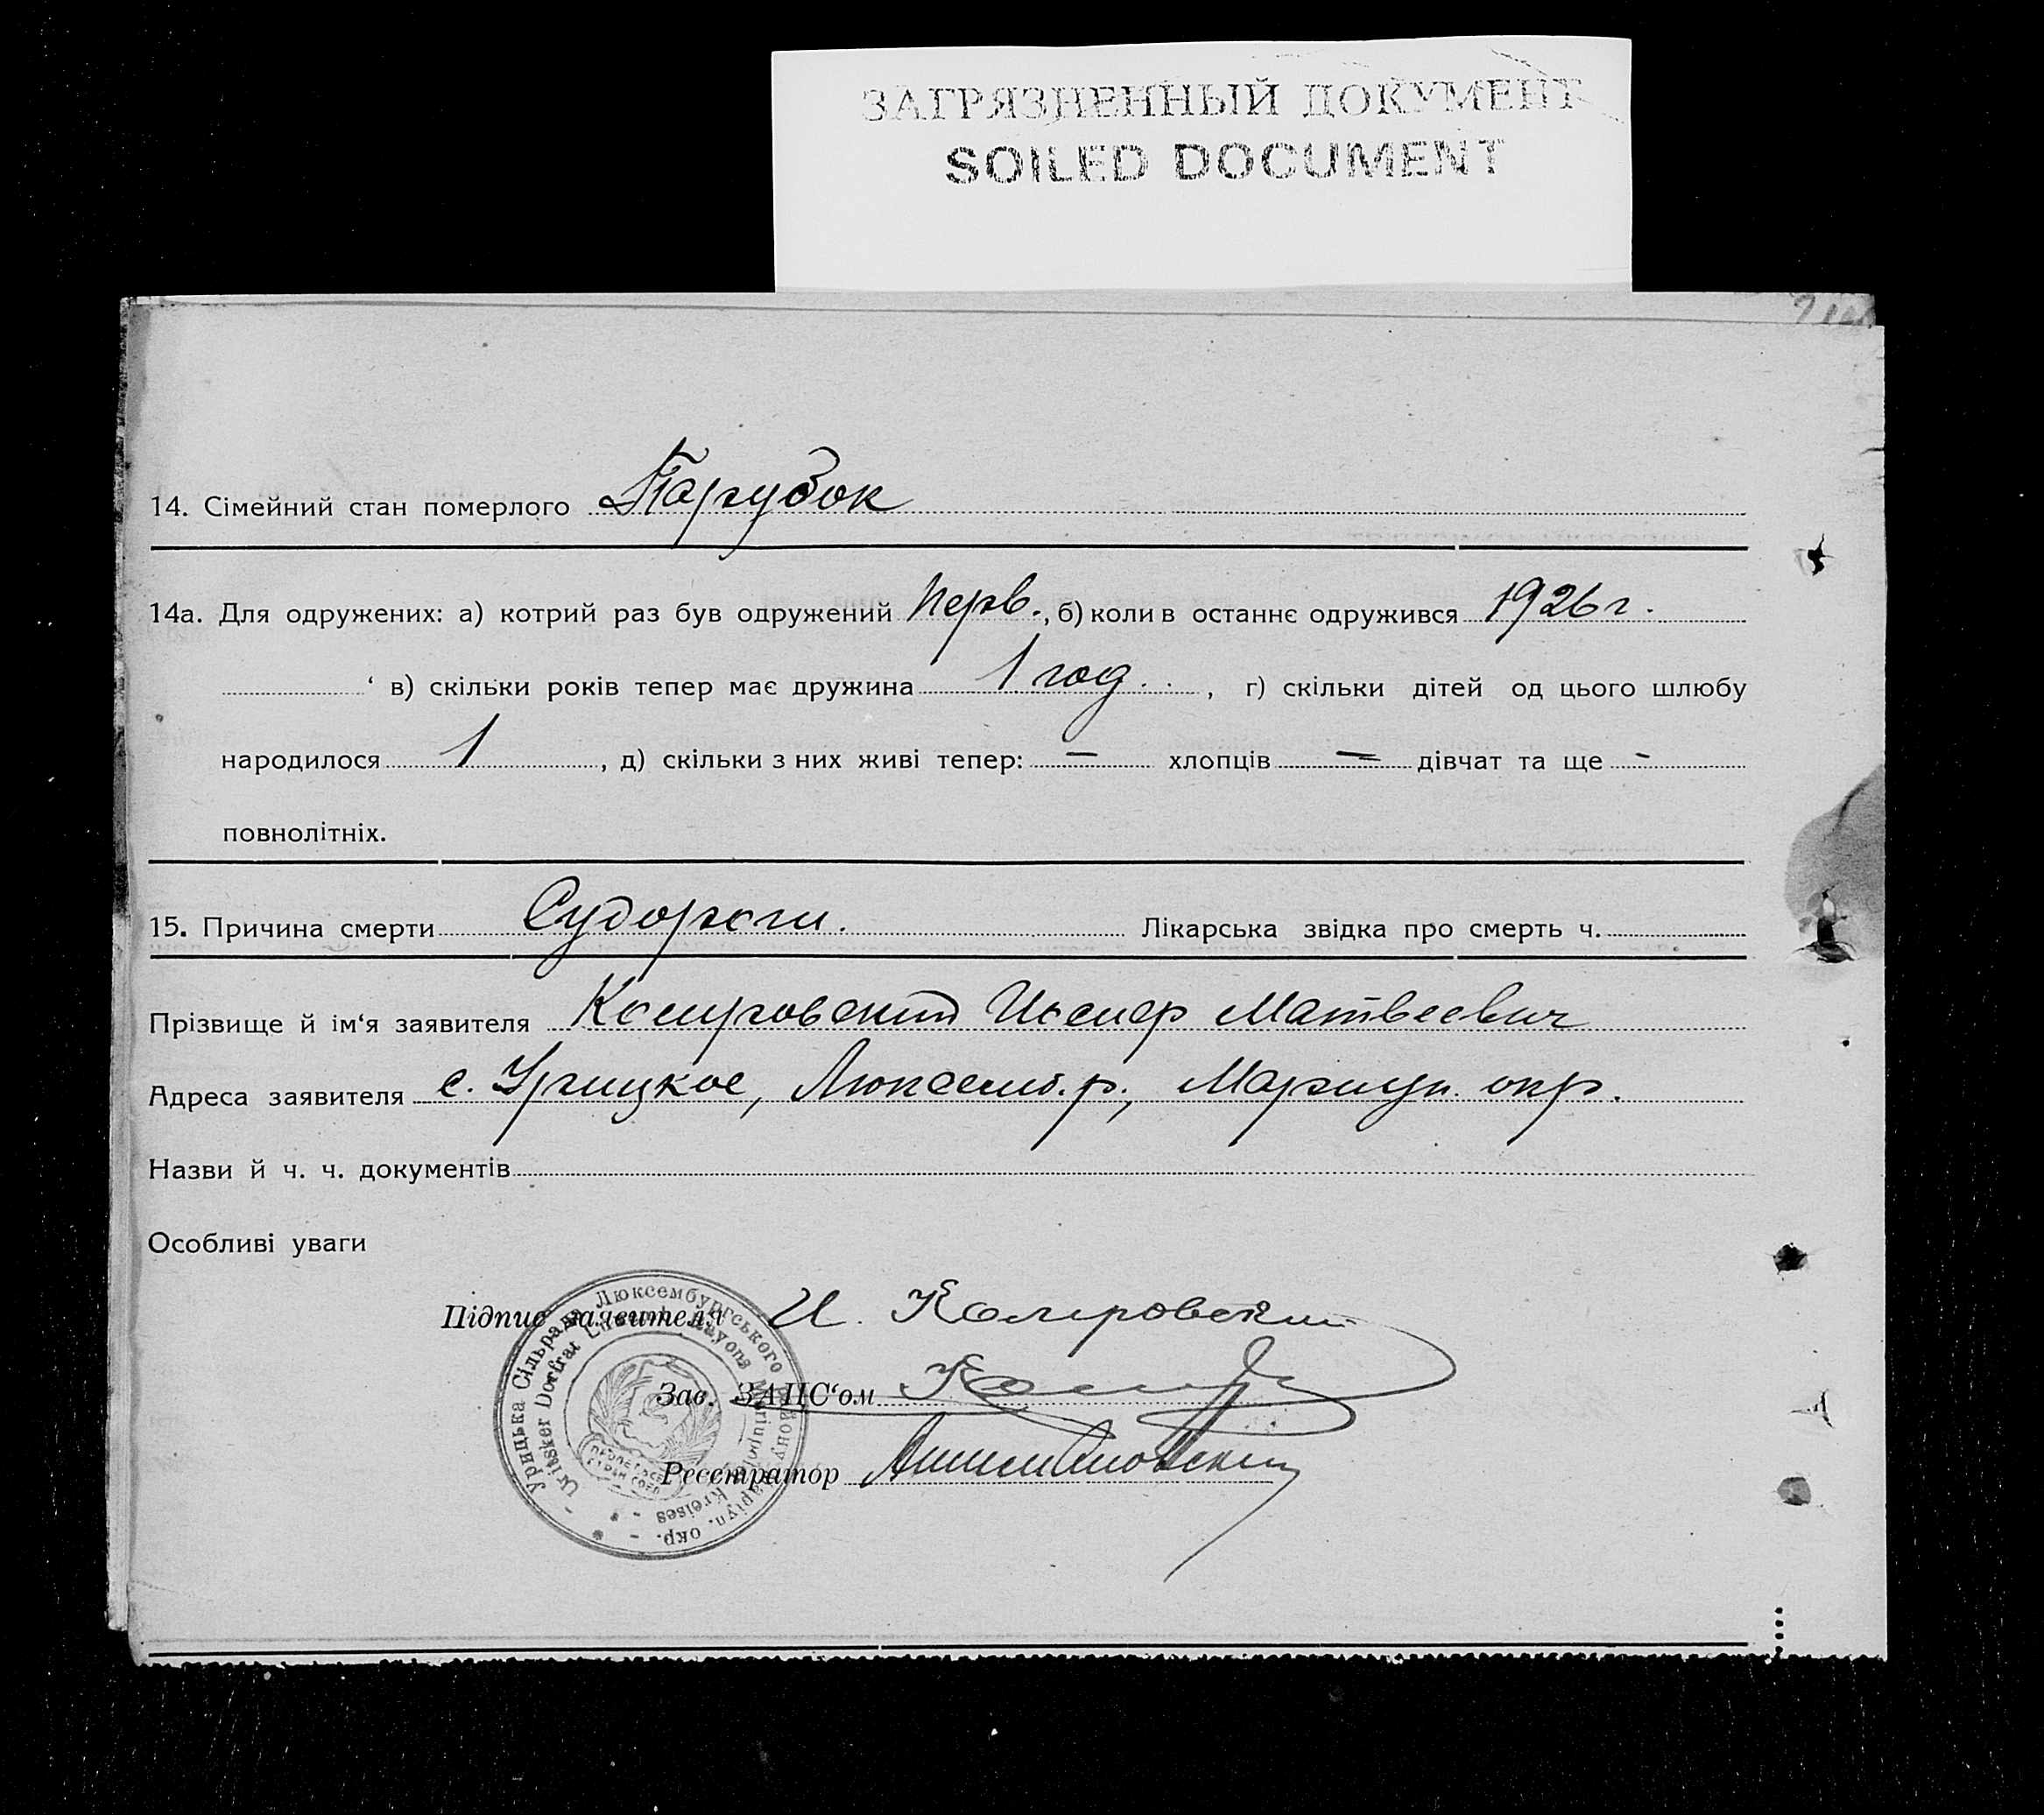 ЗАГРЯЗНЕННЫЙ ДОКУМЕНТ
SOILED DOCUMENT
14. Сімейний стан померлого Парубок
14а. Для одружених: а) котрий раз був одружений Перв., б) коли в останнє одружився 1926 г.
‘ в) скільки років тепер має дружина 1 год. , г) скільки дітей од цього шлюбу
народилося 1 , д) скільки з них живі тепер: — хлопців — дівчат та ще -
повнолітніх.
15. Причина смерти Судороги. Лікарська звідка про смерть ч.
Прізвище й ім‘я заявителя Матвеевич
Адреса заявителя с. Урицкое, Люксемб. р., Мариуп. окр.
Назви й ч. ч. документів
Особливі уваги
Підпис заявителя И.
Зав. ЗАПС‘ом
Реєстратор
Урицька Сільрада Люксембургського району Маріуп. окр.
Uritsker Dorfrat Rayons Mariupoler Kreises